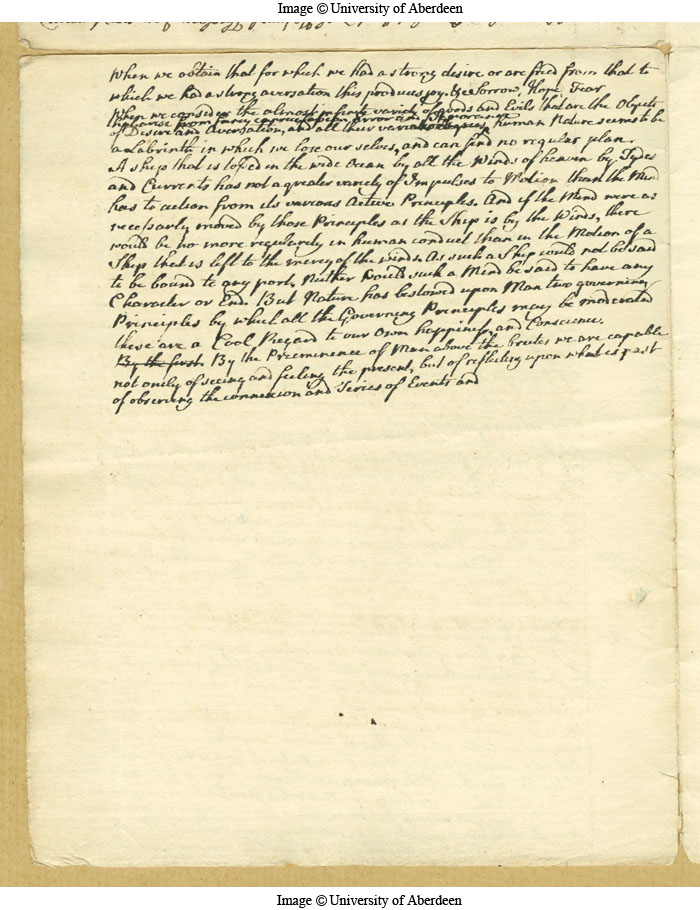 Image © University of Aberdeen
When we obtain that for which we had a strong desire or are freed from that to
which we had a strong aversation this produces joy. &c Sorrow, Hope, Fear
When we consider the almost infinite variety of goods and Evils that are the Objects
that arise from fancy caprice error and Ignorance
of Desire and Aversation, and all their various degrees, human Nature seems to be
a Labyrinth in which we lose our selves, and can find no regular plan.
A ship that is tossed in the wide Ocean by all the Winds of heaven by Tydes
and Currents has not a greater variety of Impulses to Motion than the Mind
has to action from its various Active Principles. And if the Mind were as
necessarly moved by those Principles as the Ship is by the Winds, there
would be no more regularity in human conduct than in the Motion of a
Ship that is left to the mercy of the winds. As such a Ship could not be said
to be bound to any port, Neither Could such a Mind be said to have any
Character or End. But Nature has bestowed upon Man two governing
Principles by which all the Governing Principles may be moderated
these are a Cool Regard to our Own happiness, and Conscience.
By the first. By the Preeminence of Man above the Brutes we are capable
not onely of seeing and feeling the present, but of reflecting upon what is past
of observing the connexion and Series of Events and
Image © University of Aberdeen